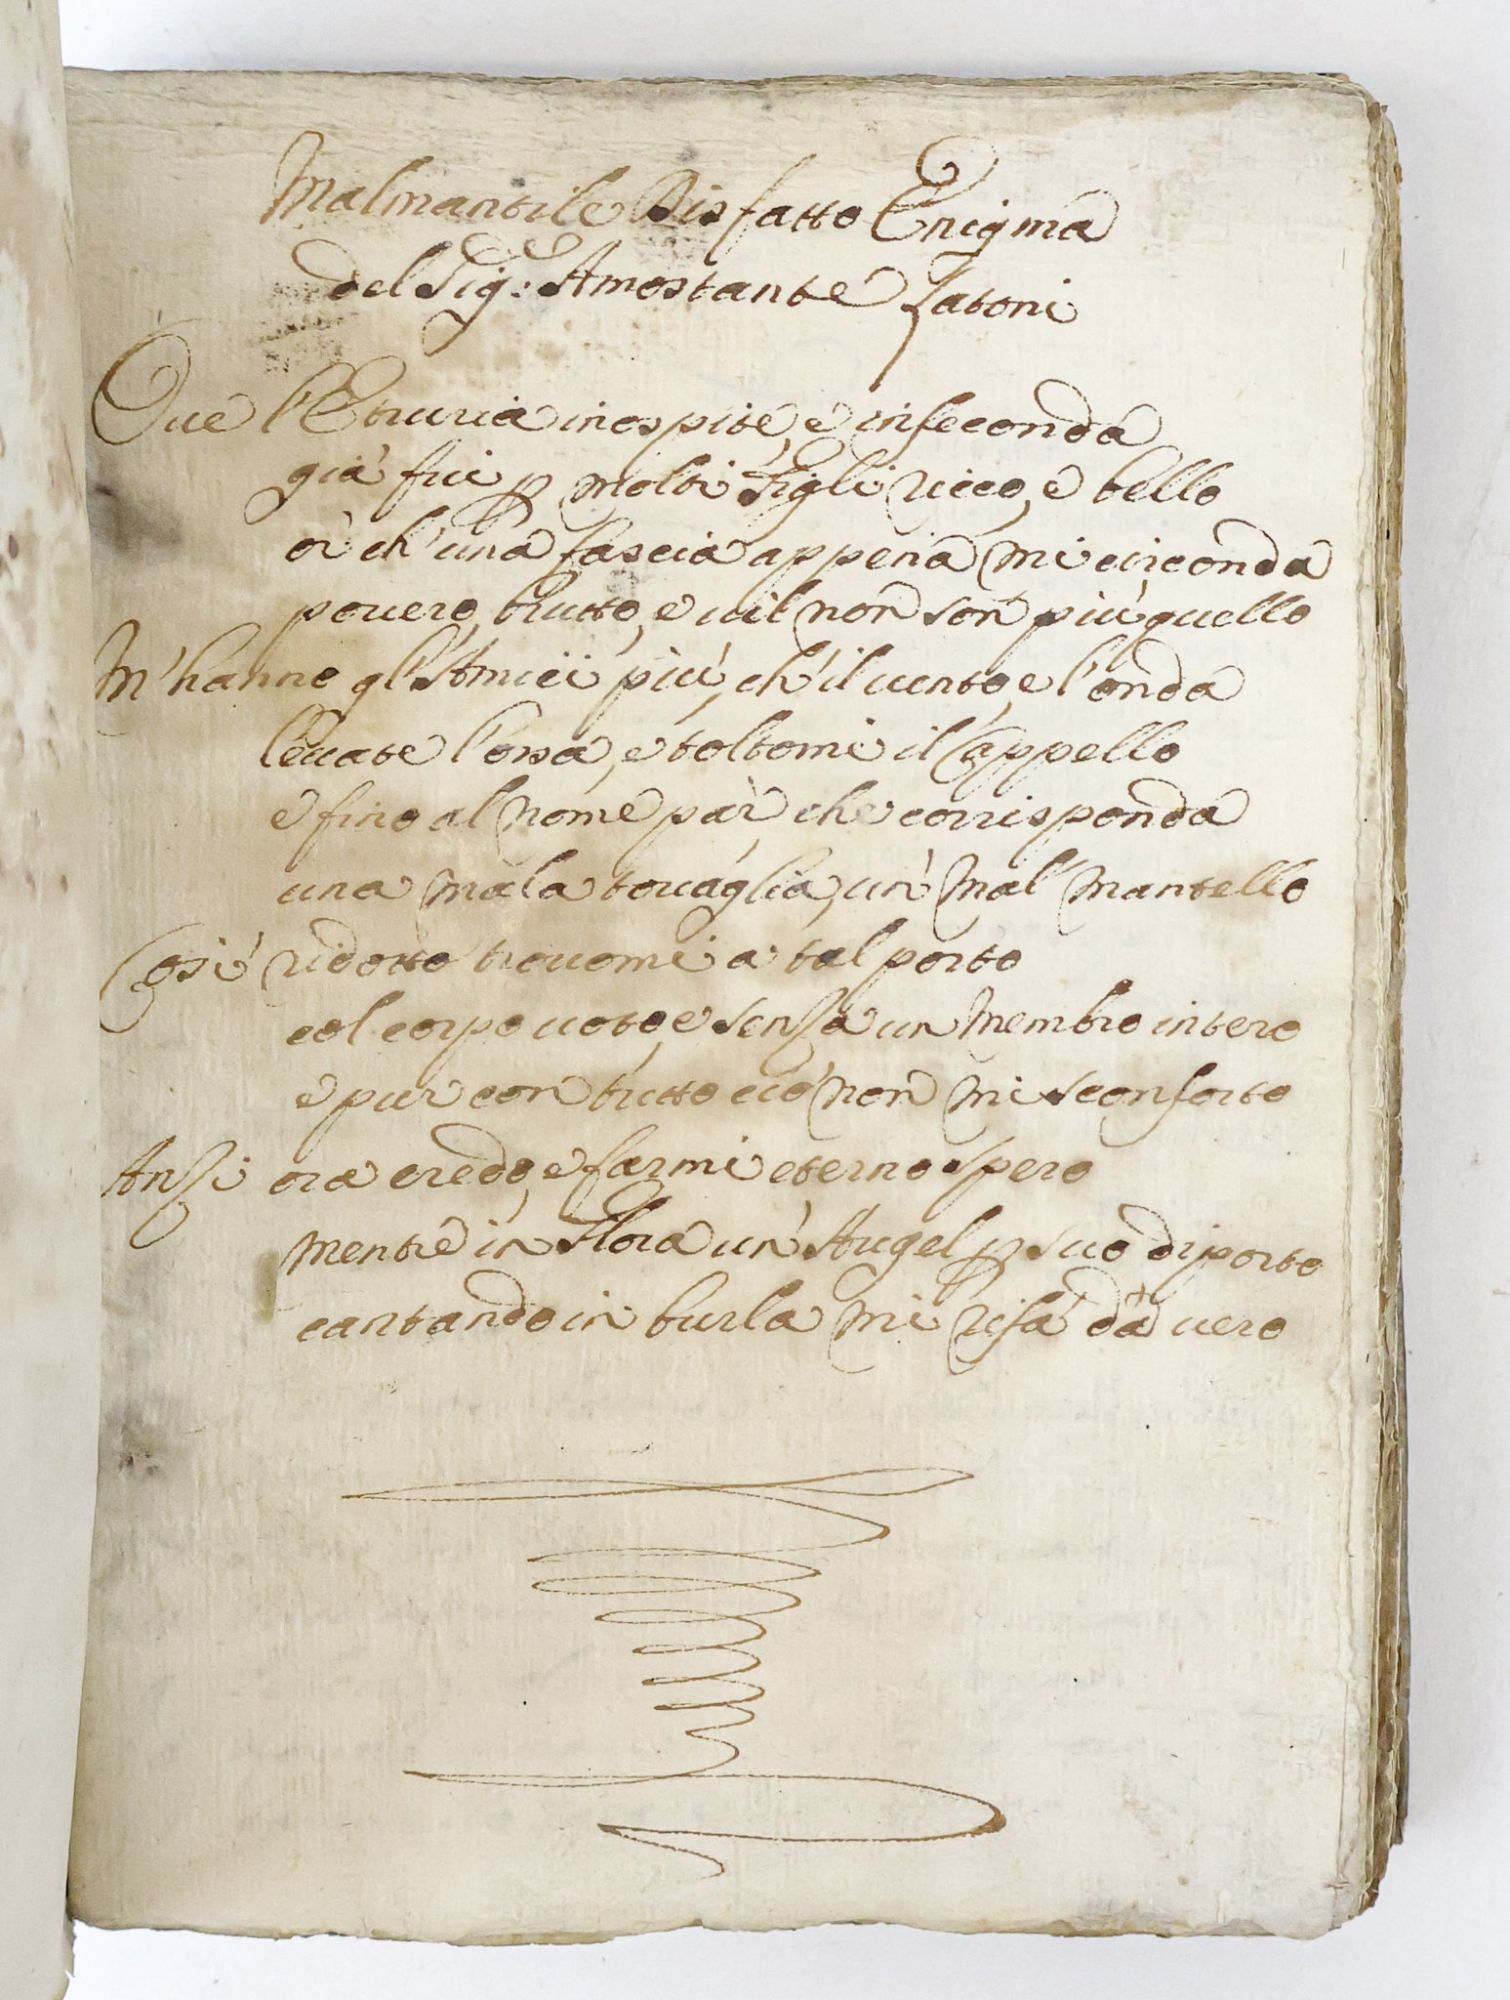 Malmantile Disfatto Enigma
del Sig: Amostante Latoni
Oue l'Etruria inospite, e infeconda
già fui p molti Figli ricco, e bello
or ch'una fascia appena mi circonda
pouero, brutto, e uil non son più quello
M'hanno gl'Amici più, ch'il uento, e l'onda
leuate l'ossa, e toltomi il Cappello
e fino al nome par, che corrisponda
una mala touaglia, un' mal' mantello
Così ridotto trouomi a tal porto
col corpo uoto, e senza un membro intero
e pur con tutto ciò non mi sconforto
Anzi ora credo, e farmi eterno spero
mentre in Flora un' Augel p suo diporto
cantando in burla mi rifà da uero